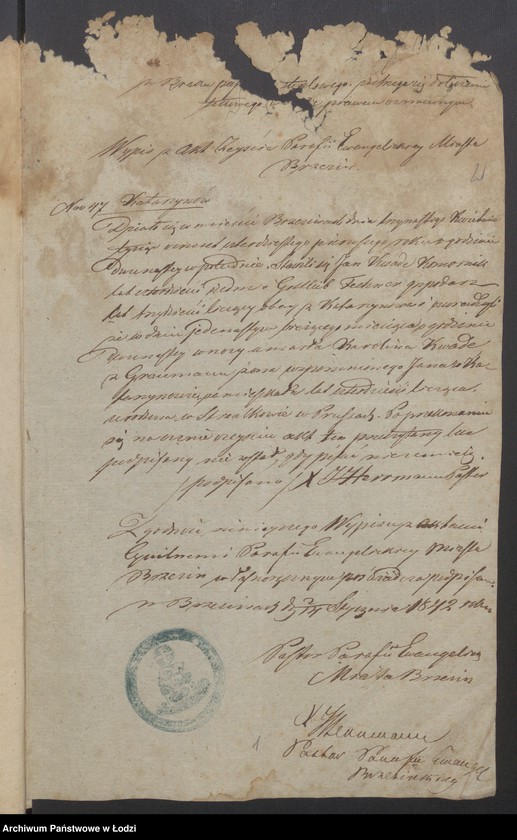 w Braku
Wypis z Akt Zejścia Parafii Ewangelickiej Miasta
Brzezin
Nro 47 Katarzynów
Działo się w mieście Brzezinach dnia trzynastego Kwietnia
tysiąc ośmset czterdziestego pierwszego roku o godzinie
dwunastej w południe. Stawili się Jan Kwade Komornik
lat czterdzieści jeden i Gottlieb Fechner gospodarz
lat trzydzieści liczący obay z Katarzynowa i oświadczyli
że w dniu jedenastym bieżącego miesiąca o godzinie
dwunastej w nocy umarła Karolina Kwade
z Graumann żona wspomnionego Jana w Ka-
tarzynowie zamieszkała lat czterdzieści licząca
urodzona w w Prusach. Po przekonaniu
się naocznie o zejściu akt ten przeczytany lecz
podpisany nie został, gdy pisać nie umieją.
podpisano / X Herrmann Pastor
Zgodność niniejszego Wypisu z aktami
Cywilnemi Parafii Ewangelickiej Miasta
Brzezin
w Brzezinach d. Stycznia 1842 roku
Pastor Parafii Ewangelic
Miasta Brzezin
X Herrmann
Pastor Parafii Ewangel
Brzezińskiej
1
Archiwum Państwowe w Łodzi